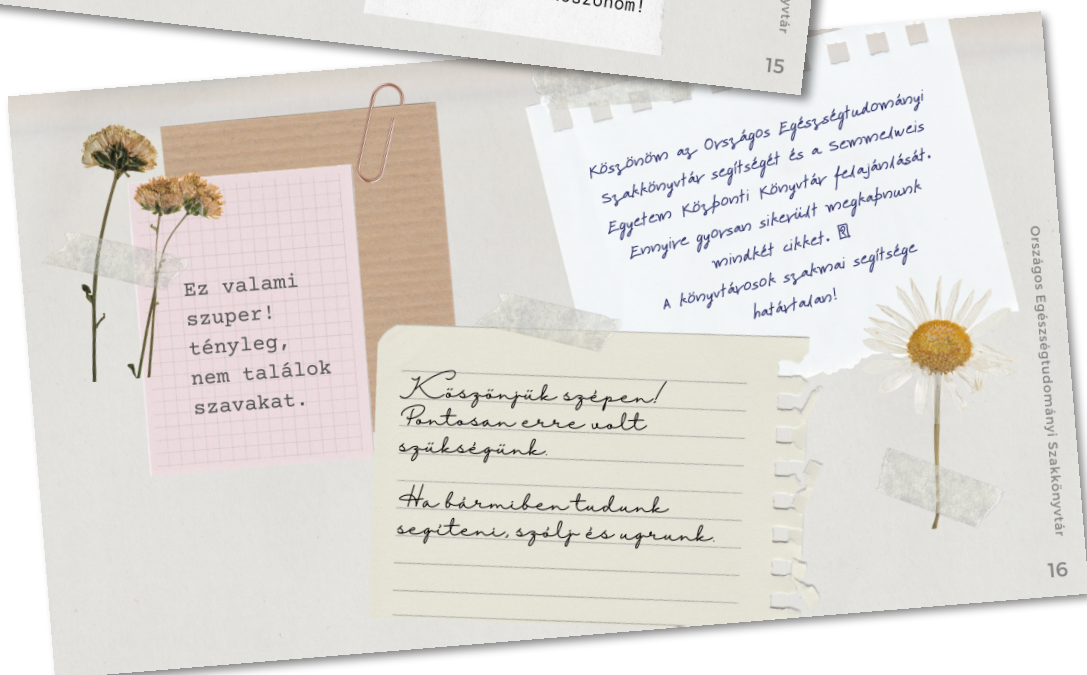 15
Ez valami
szuper!
tényleg,
nem találok
szavakat.
Köszönöm az Országos Egészségtudományi
Szakkönyvtár segítségét és a Semmelweis
Egyetem Központi Könyvtár felajánlását.
Ennyire gyorsan sikerült megkapnunk
mindkét cikket.
A könyvtárosok szakmai segítsége
határtalan!
Köszönjük szépen!
Pontosan erre volt
szükségünk.
Ha bármiben tudunk
segíteni, szólj és ugrunk.
Országos Egészségtudományi Szakkönyvtár
16